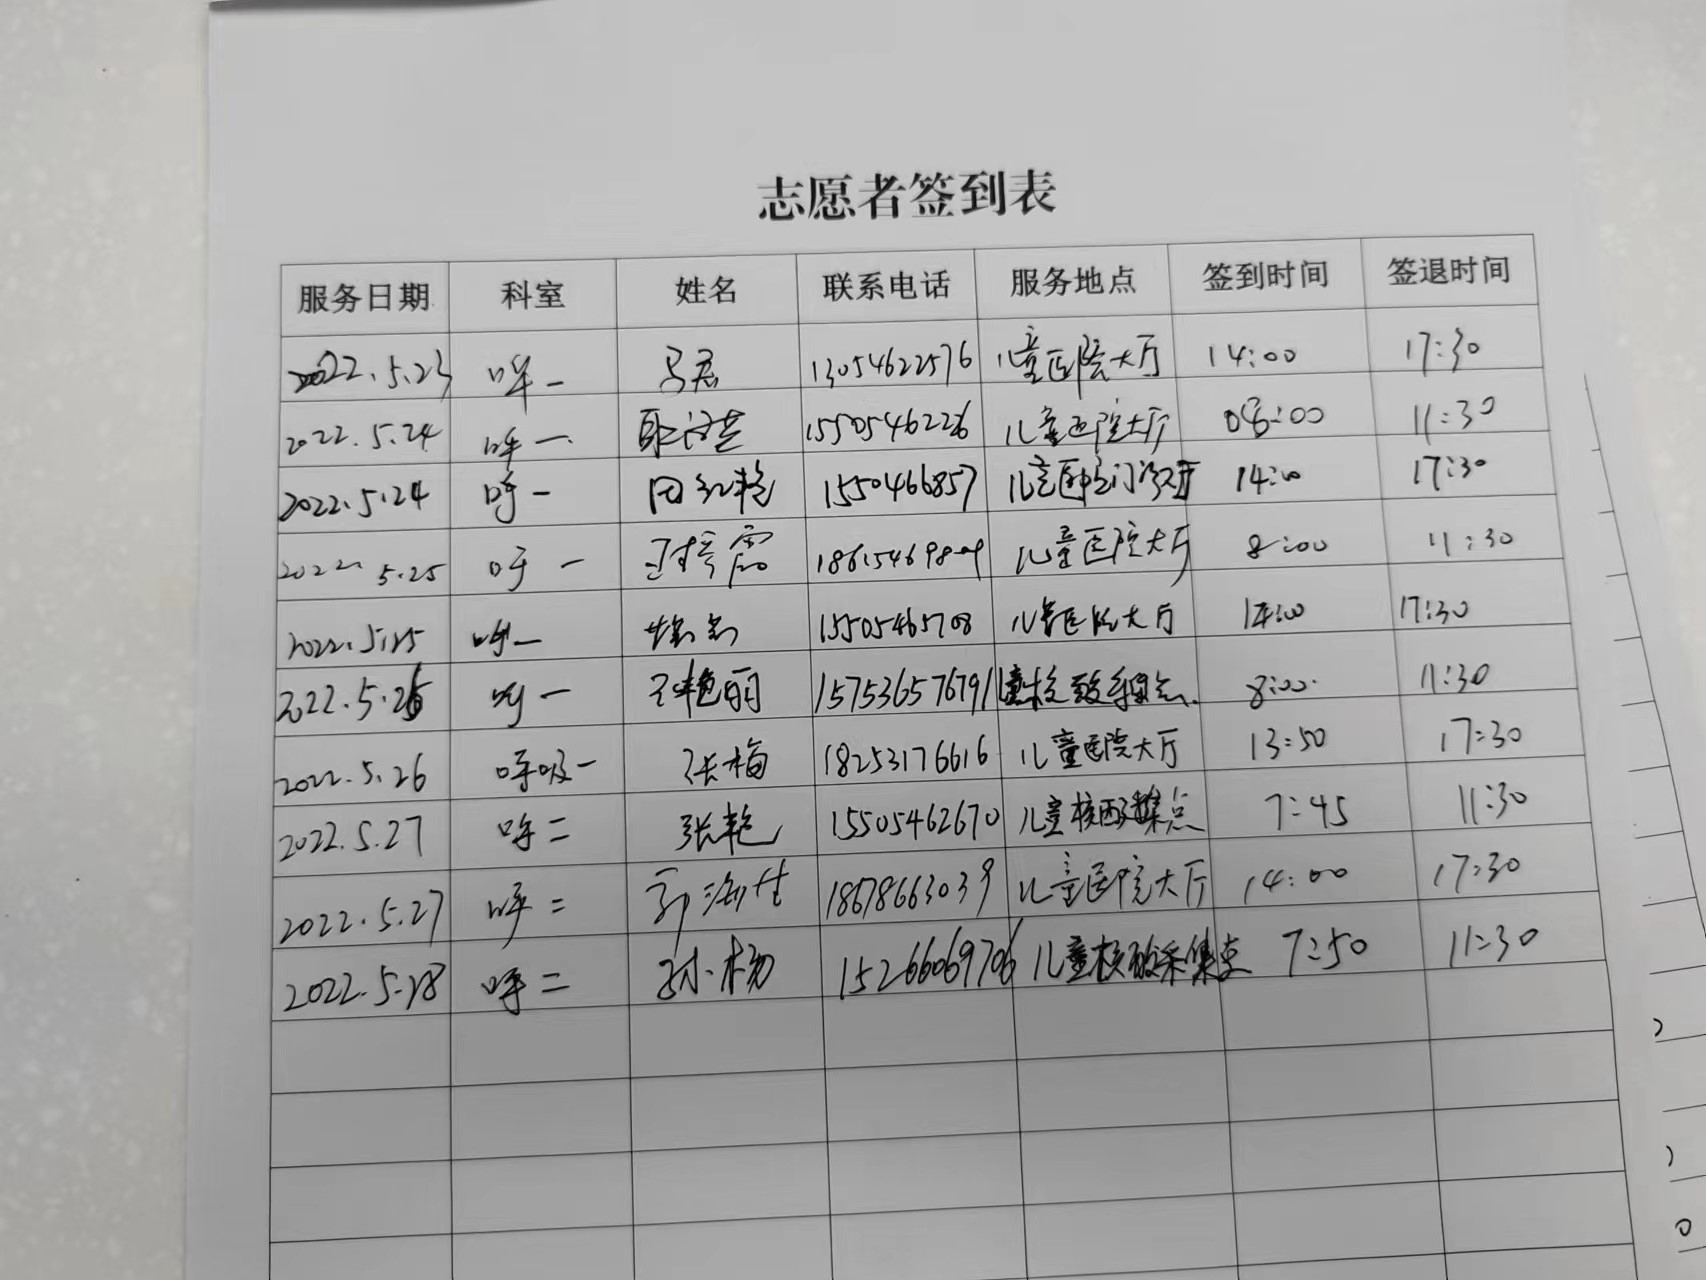 志愿者签到表
服务日期 科室 姓名 联系电话 服务地点 签到时间 签退时间
2022.5.23 呼一 马君 13054622576 儿童医院大厅 14:00 17:30
2022.5.24 呼一 15505462226 儿童医院大厅 08:00 11:30
2022.5.24 呼一 田红艳 1550466857 儿童医院门诊大厅 14:00 17:30
2022.5.25 呼一 儿童医院大厅 8:00 11:30
2022.5.25 呼一 15505465708 儿童医院大厅 14:00 17:30
2022.5.26 呼一 王艳丽 15753657679 8:00 11:30
2022.5.26 呼吸一 张梅 18253176616 儿童医院大厅 13:50 17:30
2022.5.27 呼二 张艳 15505462670 儿童核酸采集点 7:45 11:30
2022.5.27 呼二 郭海生 18678663039 儿童医院大厅 14:00 17:30
2022.5.28 呼二 孙杨 15266069706 儿童核酸采集点 7:50 11:30